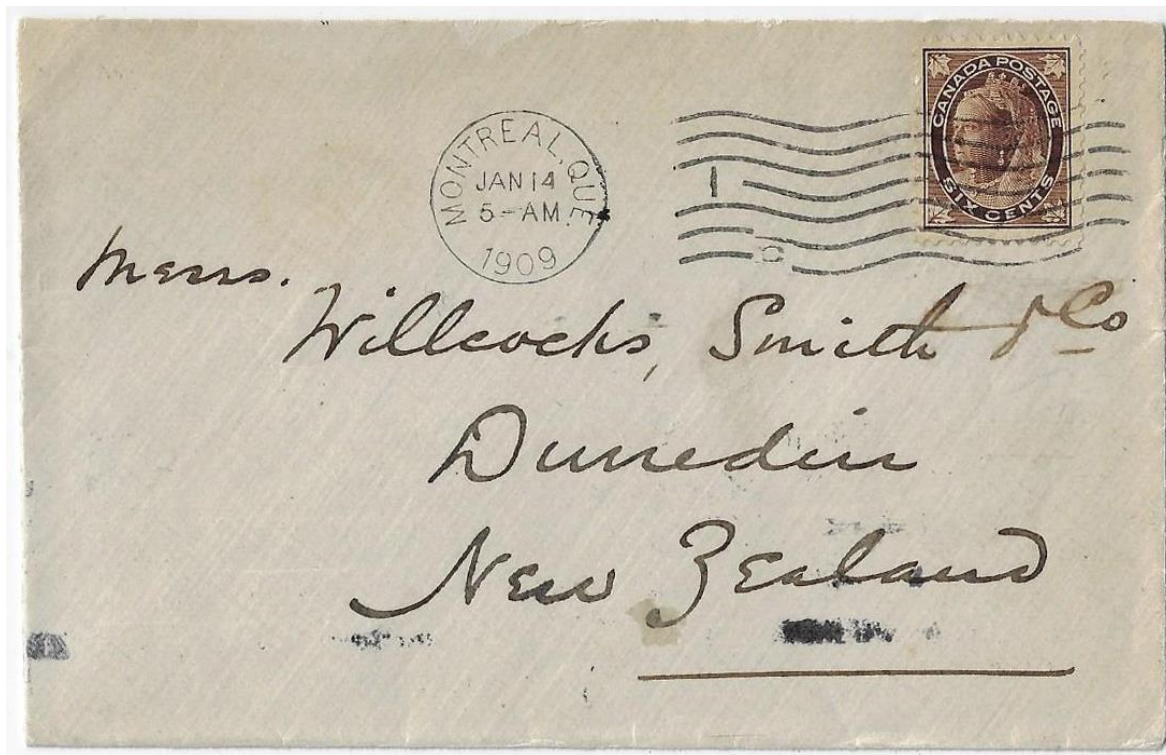 CANADA POSTAGE
SIX CENTS
MONTREAL, QUE.
JAN 14
5-AM
1909
I
Messrs.
Willcocks, Smith & Co
Dunedin
New Zealand